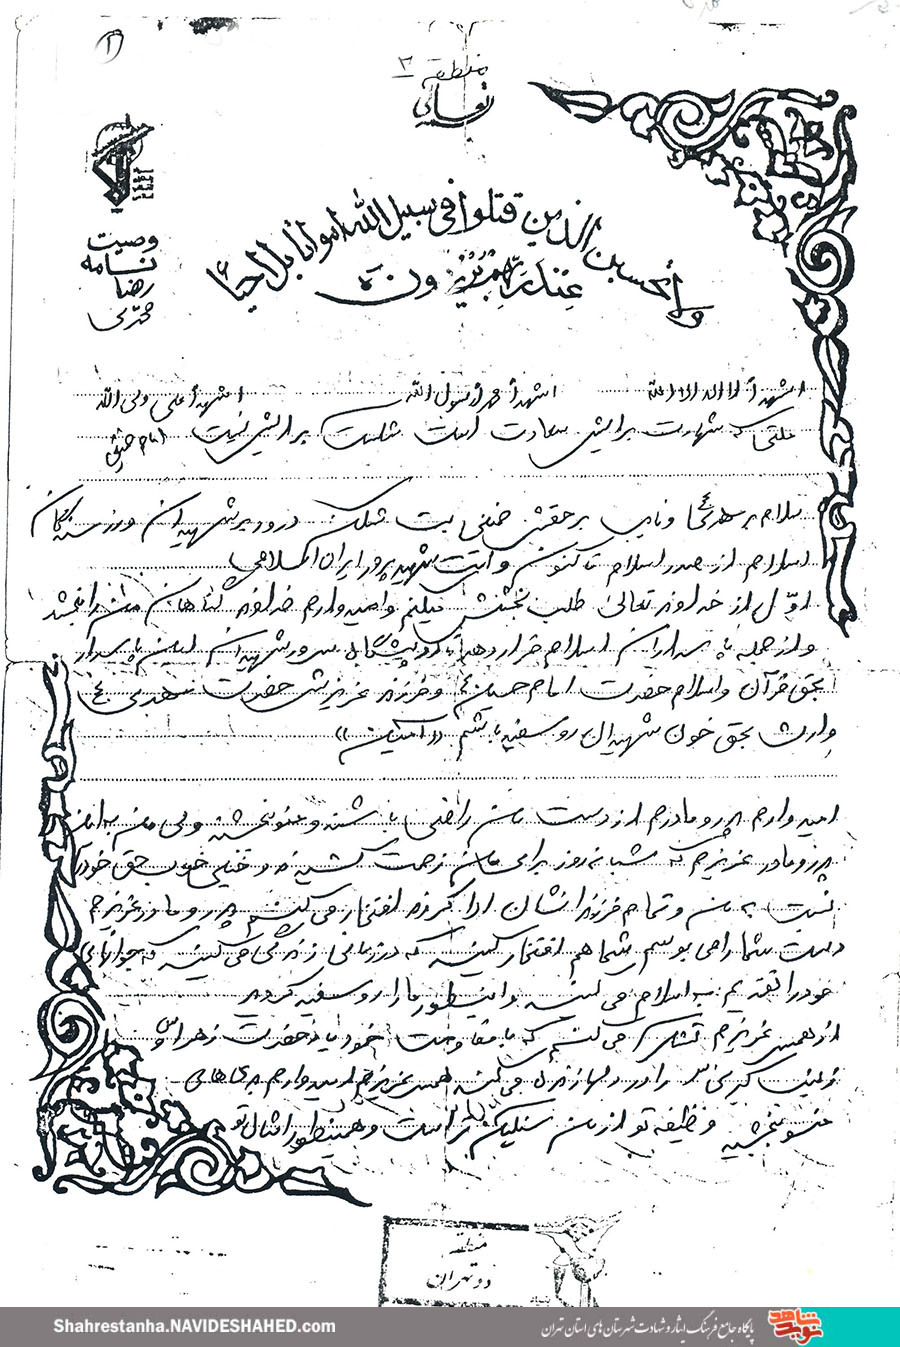 ۱
منطقه ۳
تعالی
ولا تحسبن الذین قتلوا فی سبیل الله امواتا بل احیاء
عند ربهم یرزقون
وصیت
نامه
رضا
اشهد ان لا اله الا الله اشهد ان محمد رسول الله اشهد ان علی ولی الله
ملتی که شهادت برایش سعادت است شکست برایش نیست امام خمینی
سلام بر مهدی عج و نایب بر حقش خمینی بت شکن درود بر شهیدان و رزمندگان
اسلام از صدر اسلام تا کنون و امت شهید پرور ایران اسلامی
اول از خداوند تعالی طلب بخشش میکنم و امیدوارم خداوند گناهان من را ببخشد
و از جمله پاسداران اسلام قرار دهد و در پیشگاه شهیدان این پاسدار
بحق قرآن و اسلام حضرت امام حسین ع و فرزند عزیزش حضرت مهدی عج
وارث بحق خون شهیدان رو سفید باشم «آمین»
امیدوارم پدر و مادرم از دست من راضی باشند و ببخشند ولی من به
پدر و مادر عزیزم که شبانه روز برای من زحمت کشیدند و خیلی خوب حق خود را
نسبت به من و تمام فرزندانشان ادا کردند افتخار می کنم پدر و مادر عزیزم
دست شما را می بوسم شما هم افتخار کنید که در زمانی زندگی می کنید که جوانانی
خود را تقدیم به اسلام می کنند و اینطور ما را رو سفید کردید
از همسر عزیزم تشکر می کنم که با مقاومت خود یاد حضرت زهرا س و
زینب کبری س را در دلها زنده می کند همسر عزیزم امیدوارم مرا
ببخشید وظیفه تو از من سنگین تر است و همینطور امثال تو
منطقه
دو تهران
Shahrestanha.NAVIDESHAHED.com
پایگاه جامع فرهنگ ایثار و شهادت شهرستان های استان تهران
نوید شاهد